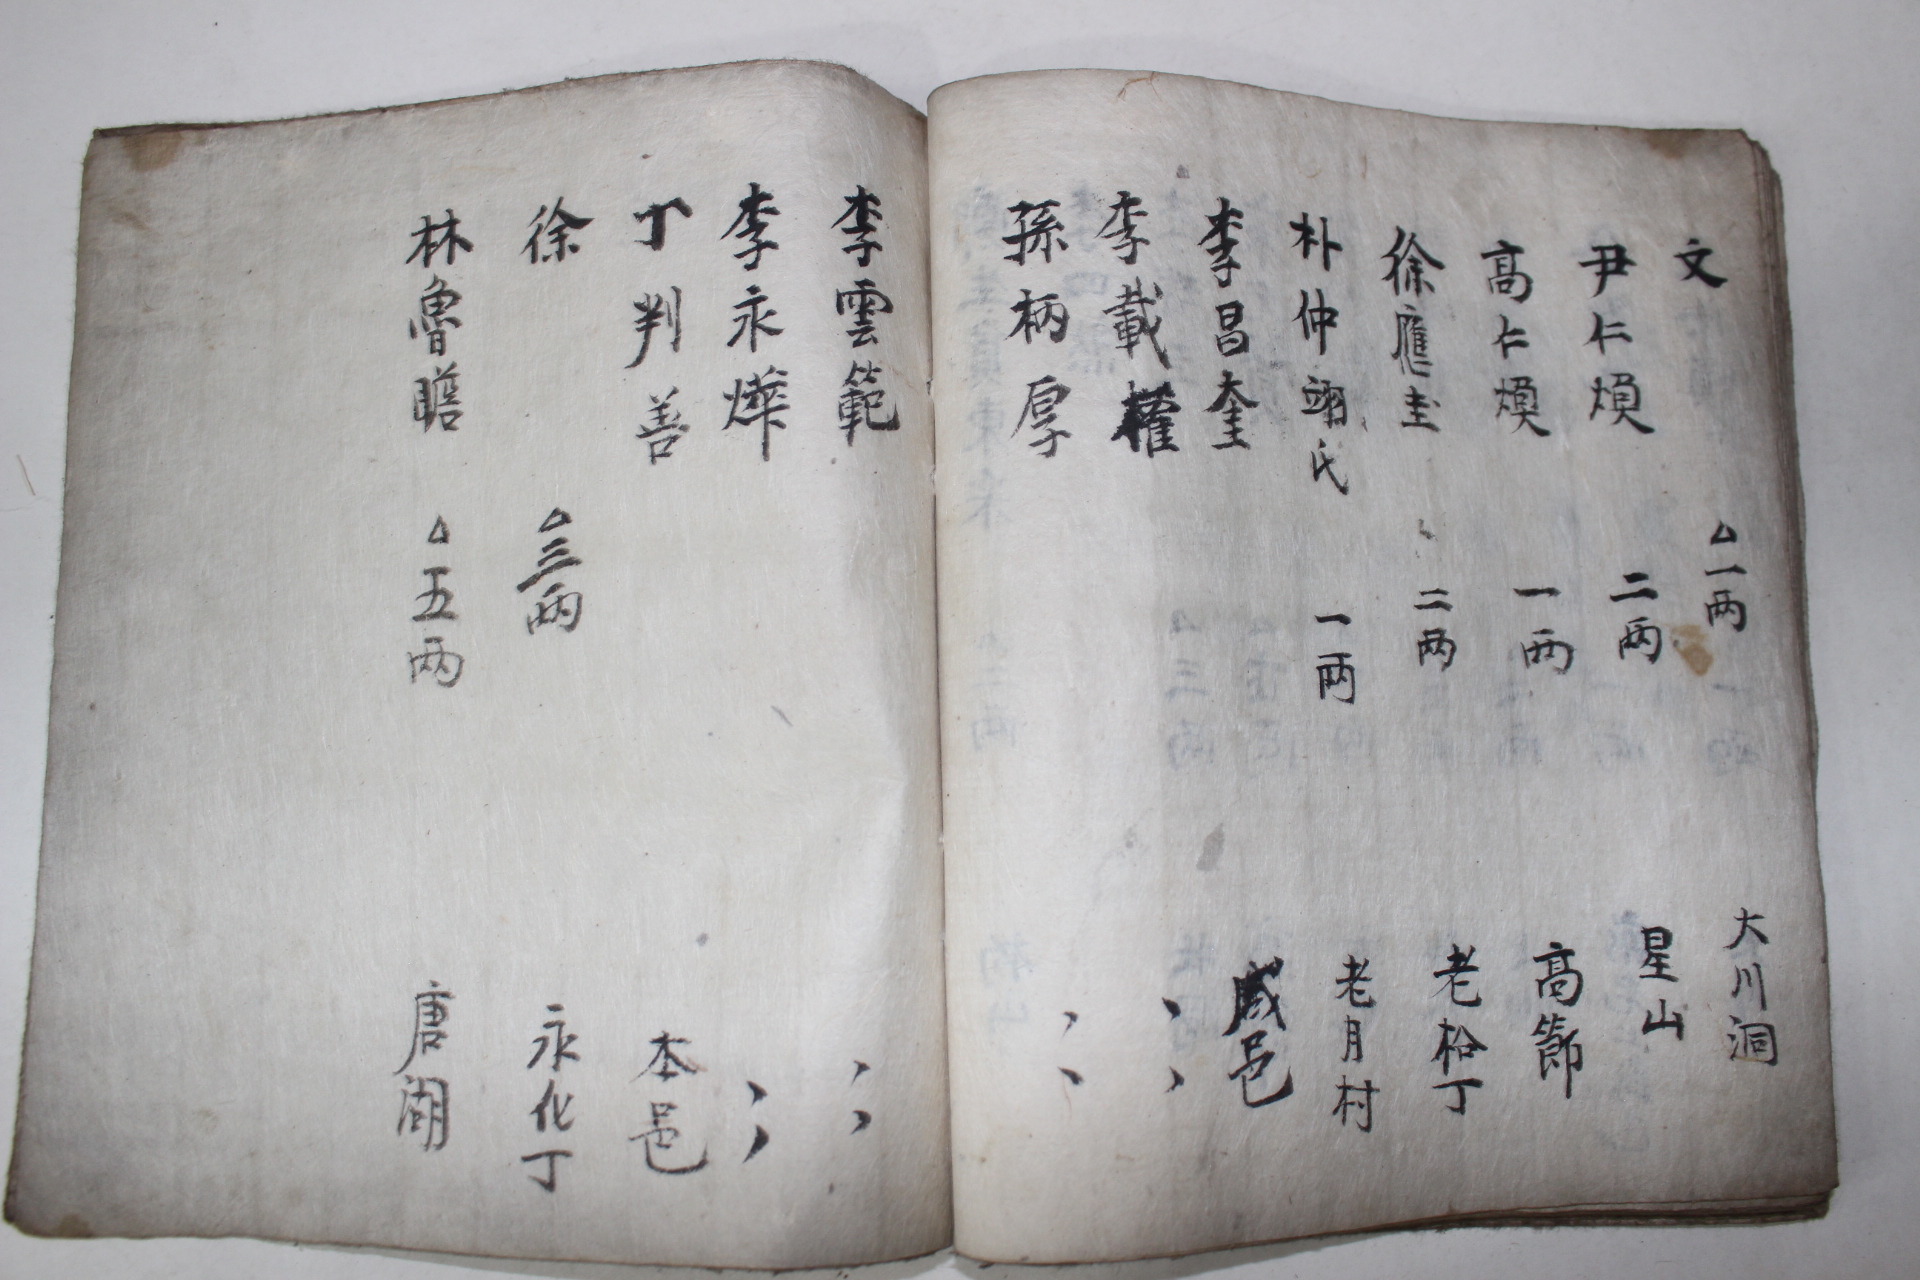 文 一两 大川洞
尹仁煩 二两 星山
高仁煥 一两 高節
徐應圭 二两 老松丁
朴仲翊氏 一两 老月村
李昌奎 咸邑
李載權 〻
孫柄厚 〻
李雲範 〻
李永燁 〻
丁判善 本邑
徐 三两 永化丁
林魯瞻 五两 唐湖